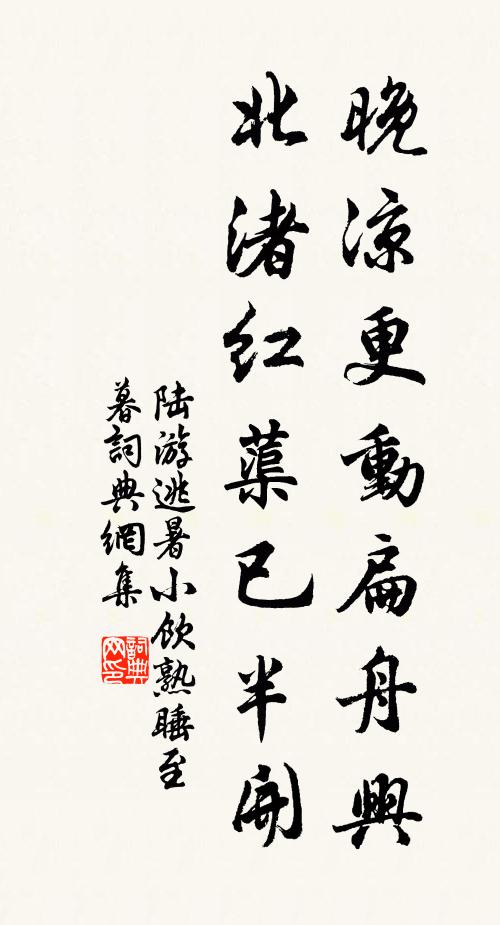 晚涼更動扁舟興
北渚紅蕖已半開
陆游逃暑小飲熟睡至
暮詞典網集
詞典
网印